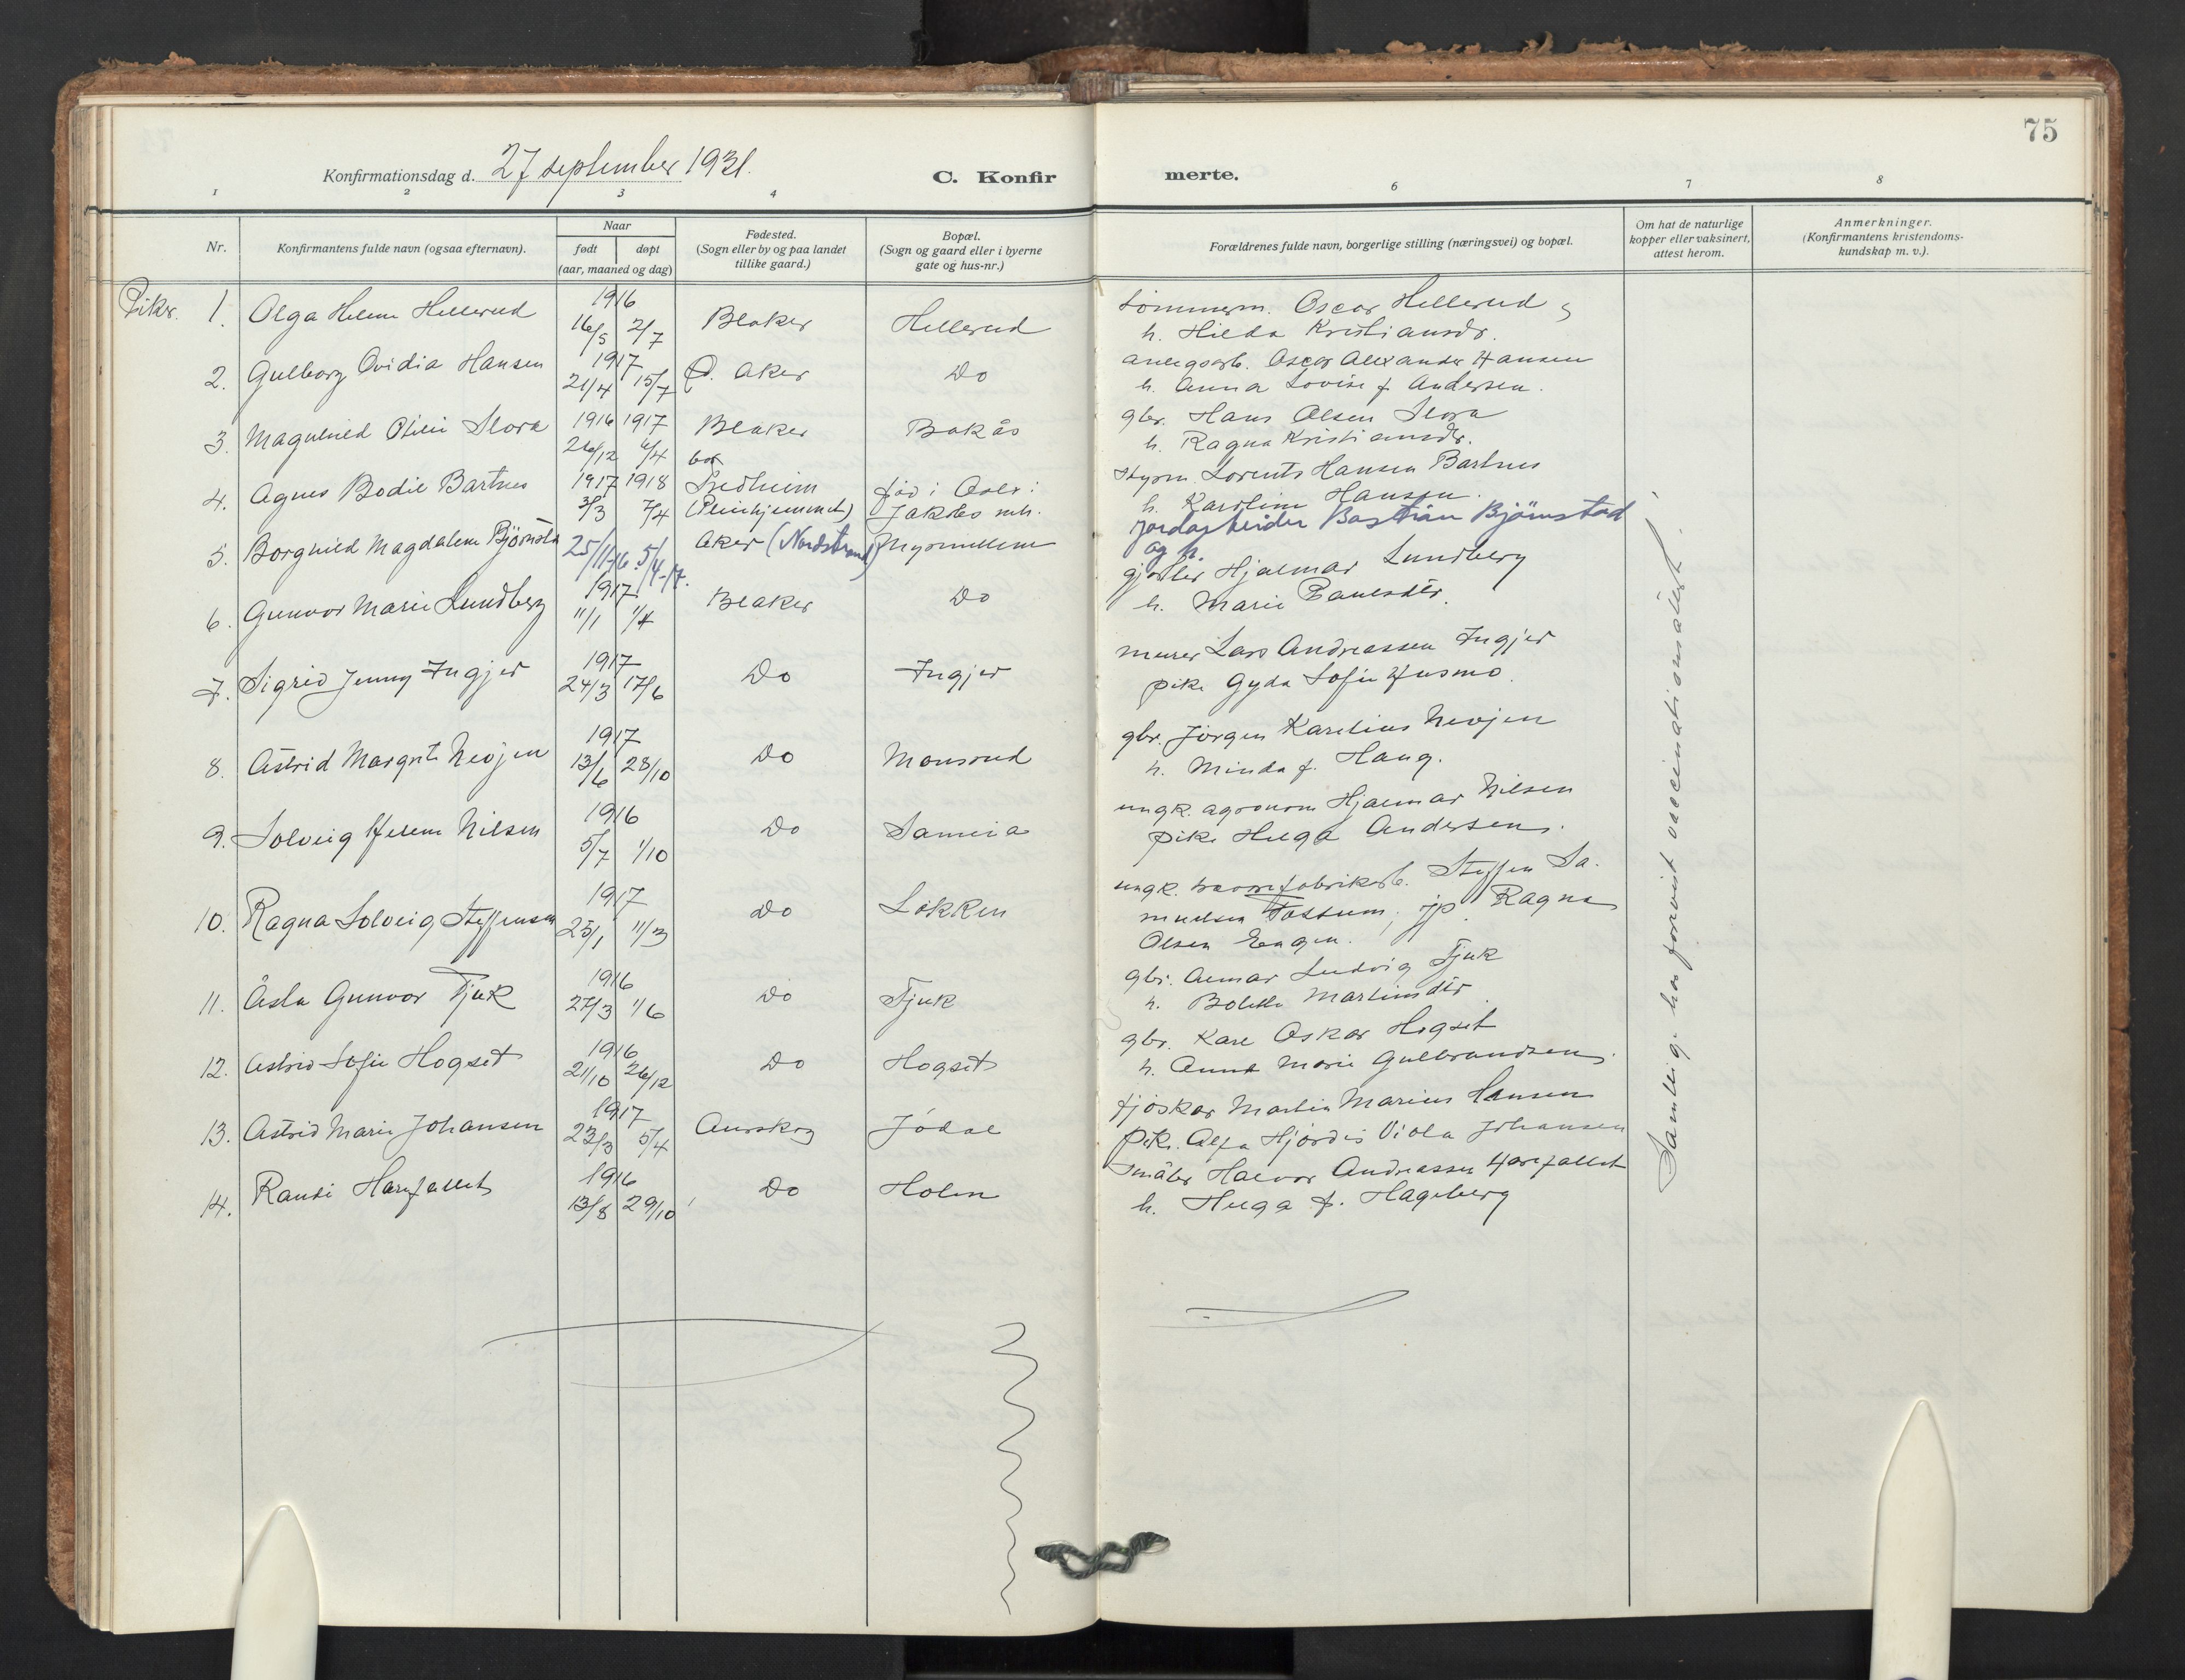 75
Konfirmationsdag d. 27 september 1931.
C. Konfir
merte.
1 2 3 4 6 7 8
Nr.
Konfirmantens fulde navn (ogsaa efternavn).
Naar
født døpt
(aar, maaned og dag)
Fødested.
(Sogn eller by og paa landet
tillike gaard.)
Bopæl.
(Sogn og gaard eller i byerne
gate og hus-nr.)
Forældrenes fulde navn, borgerlige stilling (næringsvei) og bopæl.
Om hat de naturlige
kopper eller vaksinert,
attest herom.
Anmerkninger.
(Konfirmantens kristendoms-
kundskap m. v.).
Piker. 1. Olga Helene Hellerud 1916 16/5 2/7 Blaker Hellerud
tömmerm. Oscar Hellerud
h. Hilda Kristiansdr.
2. Gulborg Ovidia Hansen 1917 21/4 15/7 Ø. Aker Do
anlegsarb. Oscar Alexander Hansen
h. Anna Lovise f Andersen.
3. Magnhild Otilie Slora 1916 1917 26/12 6/4 Blaker Bakås
gbr. Hans Olsen Slora
h. Ragna Kristiansdr.
4. Agnes Bodil Bartnes 1917 1918 3/3 7/4
Solheim
(Pleiehjemmet)
fød i Oslo:
Jakobs mh.
styrm. Lorents Hansen Bartnes
h. Karoline Hansen.
5. Borghild Magdalene Björnsta 25/11-16. 5/4-17. Aker (Nordstrand) Myrmellem
jordarbeider Bastian Björnstad
og h.
6. Gunvor Marie Lundberg 1917 11/1 1/4 Blaker Do
gjørtler Hjalmar Lundberg
h. Marie Paulsdtr.
7. Sigrid Jenny Ingjer 1917 24/3 17/6 Do Ingjer
murer Lars Andreassen Ingjer
pike Gyda Sofie Husmo.
8. Astrid Margrete Nevjen 1917 13/6 28/10 Do Monsrud
gbr. Jörgen Karelius Nevjen
h. Minda f. Haug.
9. Solveig Helene Nilsen 1916 5/7 1/10 Do Sameia
ungk. agronom Hjalmar Nilsen
pike Helga Andersen.
10. Ragna Solveig Steffensen 1917 25/1 11/3 Do Løkken
ungk. Steffen Sa-
muelsen Fossum, jp. Ragna
Olsen Engen.
11. Åsta Gunvor Tjuk 1916 27/3 1/6 Do Tjuk
gbr. Anmar Ludvig Tjuk
h. Bolette Martinsdtr
12. Astrid Sofie Hogset 1916 21/10 26/12 Do Hogset
gbr. Karl Oskar Hogset
h. Anna Marie Gulbrandsen.
13. Astrid Marie Johansen 1917 23/3 5/4 Aurskog Jódal
fjøskar Martin Marius Hansen
pike Alfa Hjördis Viola Johansen
14. Randi Harefallet 1916 13/8 29/10 Do Holen
småbr Halvor Andreassen Harefallet
h. Helga f. Hageberg
Samtlige har forevist vaccinationsattest.